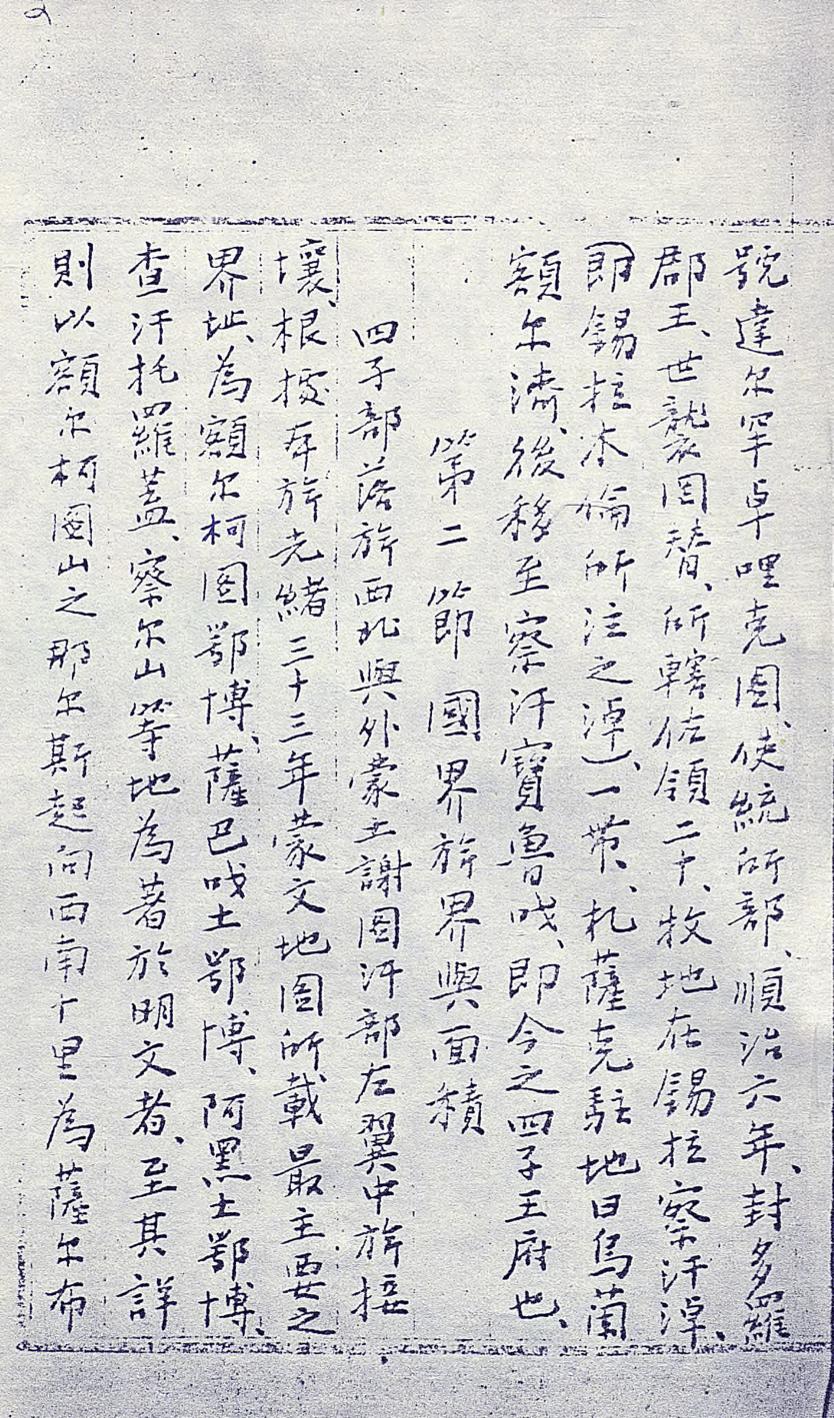 號達尔罕卓哩克圖、使統所部、順治六年、封多羅
郡王、世襲罔替、所轄佐領二十、牧地在錫拉察汗淖、
(即錫拉木倫所注之淖)、一带、札薩克駐地曰烏蘭
額尔濟、後移至察汗寶魯戏、即今之四子王府也、
第二節 國界旂界與面積
四子部落旂西北與外蒙土謝圖汗部左翼中旂接
壤、根據本旂光緒三十三年蒙文地圖所載最主要之
界址、為額尔柯圖鄂博、薩巴戏土鄂博、阿黑土鄂博、
查汗托羅蓋、察尔山等地為著於明文者、至其詳
則以額尔柯圖山之那尔斯起向西南十里為薩尔布